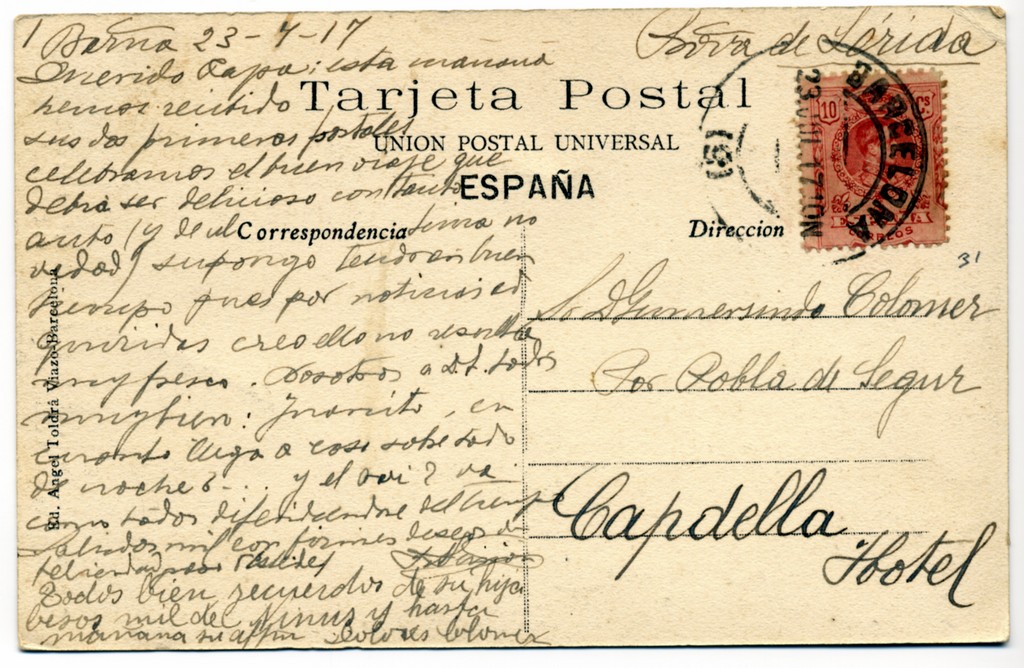 Barna 23-7-17
Querido Papa: esta mañana
hemos recibido
sus dos primeras postales
celebramos el buen viaje que
debra ser delicioso con tanto
auto (y de
vedad) supongo tendran buen
tiempo pues por noticias
creo el no
muy fresco. Nosotros a D. g. todos
muy bien: Juanito, en
cuanto llega a casa sobre todo
de noche 6... y el avi? va
como todos defendiendose del tiempo
Saludos mil con
Todos bien recuerdos de su hija
besos mil de Ninus y hasta
mañana su Dolores Colomer
Prova de Lérida
Tarjeta Postal
UNION POSTAL UNIVERSAL
ESPAÑA
Correspondencia
Direccion
BARCELONA
23 JUL 17 10N
(9)
10 Cs
CORREOS
31
A D Gumersindo Colomer
Por Pobla de Segur
Capdella
Hotel
Ed. Angel Toldrá Viazo-Barcelona